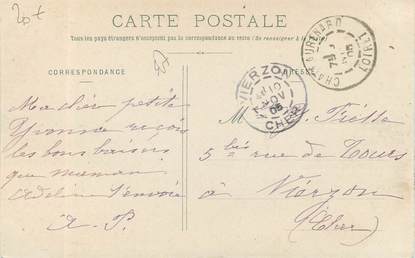 20+
CARTE POSTALE
Tous les pays étrangers n'acceptent pas la correspondance au recto (Se renseigner à la
CORRESPONDANCE
VIERZON
10
NOV
05
CHER
CHATEAURENARD
LOIRET
Ma chère petite
Yvonne reçois
les bons baisers
que maman
t'envoie
A. P.
M
5 bis rue de Tours
à Vierzon
(Cher)